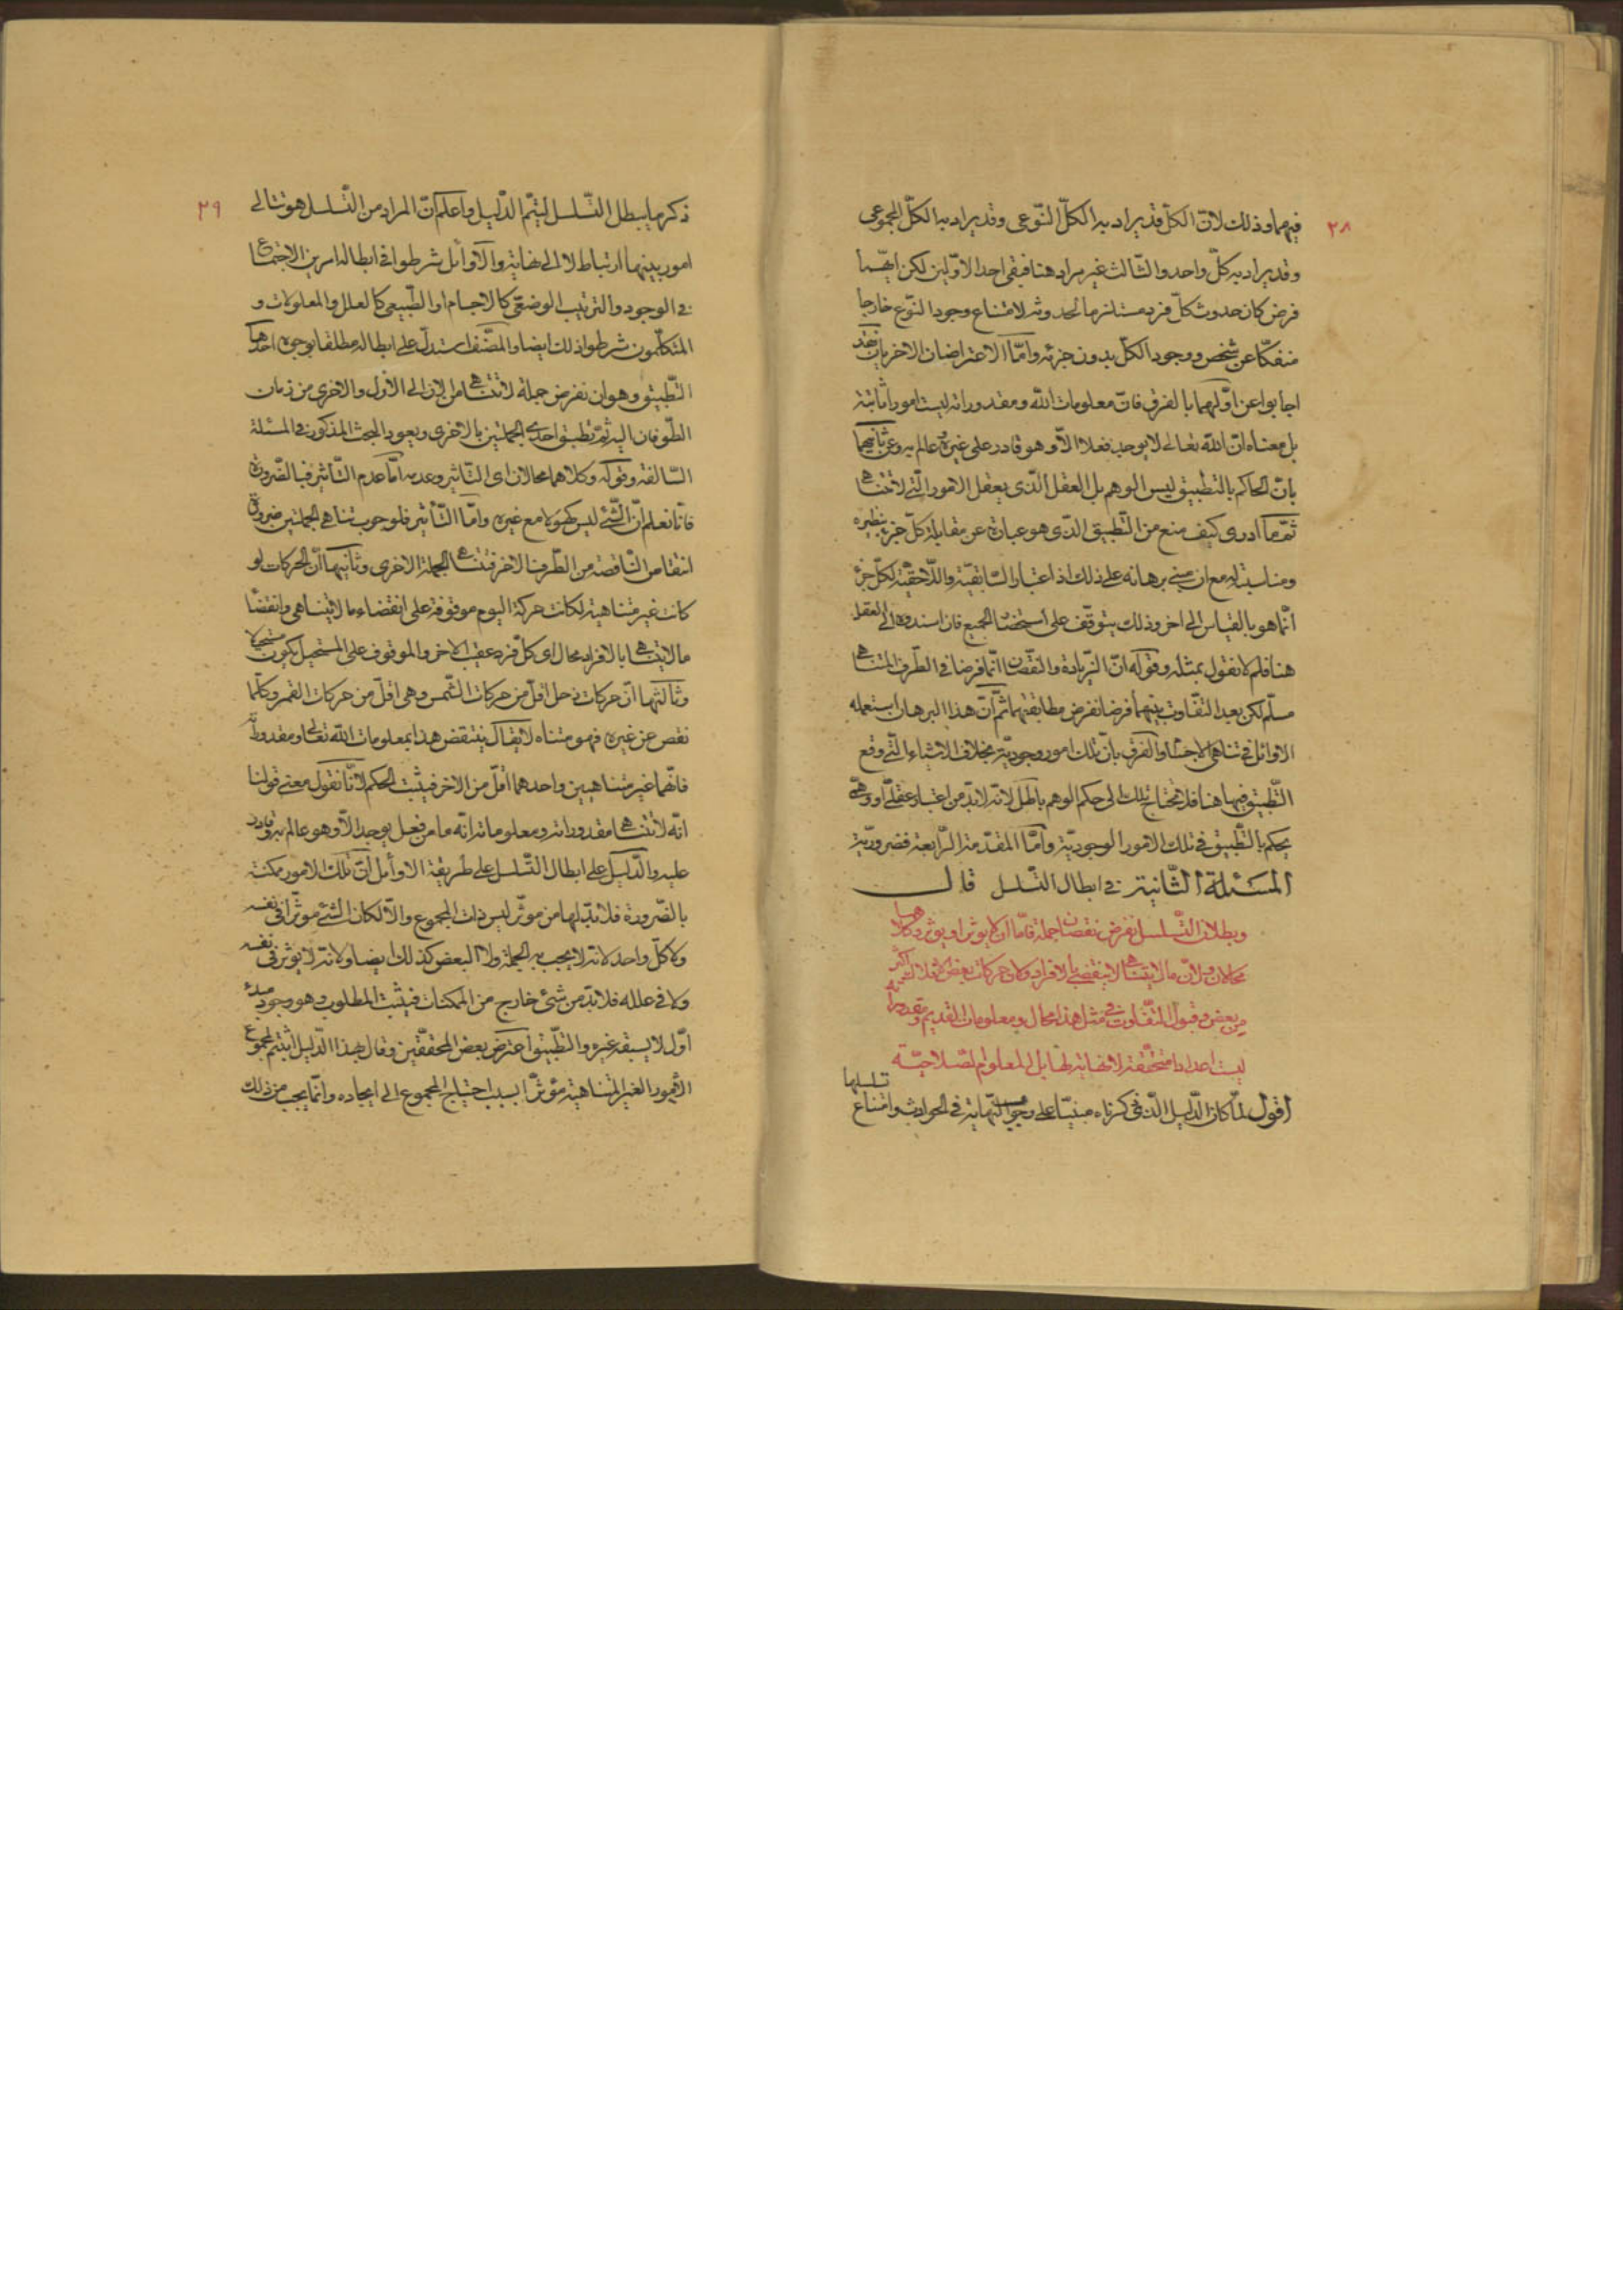 ٢٨
فيهما وذلك لانّ الكلّ قد يراد به الكلّ النّوعى وقد يراد به الكلّ المجموعى
وقد يراد به كلّ واحد والثّالث غير مراد هنا فبقى احد الاوّلين لكن ايّهما
فرض كان حدوث كلّ فرد مستلزما لحدوثه لامتناع وجود النّوع خارجا
منفكّا عن شخص ووجود الكلّ بدون جزئه وامّا الاعتراضان الاخريان فقد
اجابوا عن اوّلهما بالفرق فانّ معلومات الله ومقدوراته ليست امورا ثابتة
بل معناه انّ الله تعالى لا يوجد فعلا الّا وهو قادر على غيره وعالم به وعن ثانيهما
بانّ الحاكم بالتطبيق ليس الوهم بل العقل الّذى يعقل الامور الّتى لا تتناهى
ثمّ ما ادرى كيف منع من التّطبيق الّذى هو عبارة عن مقابلة كلّ جزء بنظيره
ومناسبته له مع ان مبنى برهانه على ذلك اذ اعتبار السّابقيّة واللّاحقيّة لكلّ جزء
انّما هو بالقياس الى اخر وذلك يتوقّف على استحضار الجميع فان اسندوه الى العقل
هنا فلم لا نقول بمثله وقوله انّ الزّيادة والنّقصان انّما فرضا فى الطّرف المتناهى
مسلّم لكن بعد التّفاوت بينهما فرضا نفرض مطابقتهما ثمّ انّ هذا البرهان استعمله
الاوائل فى تناهى الاجسام والفرق بانّ تلك امور وجوديّة بخلاف الاشياء الّتى وقع
التّطبيق فيها هنا فلا تحتاج تلك الى حكم الوهم باطل لانّه لا بدّ من اعتبار عقلىّ او وهمىّ
يحكم بالتّطبيق فى تلك الامور الوجوديّة وامّا المقدّمة الرّابعة فضروريّة
المسئلة الثّانية فى ابطال التّسلسل قال
وبطلان التّسلسل بفرض نقصان جملة فامّا ان لا يوثر او يوثر وكلاهما
محالان ولانّ ما لا يتناهى لا ينقضى بالافراد ولانّ حركات بعض الافلاك اكثر
من بعض وقبول التّفاوت فى مثل هذا محال ومعلومات القديم ومقدوراته
ليست اعدادا متحقّقة لا نهاية لها بل المعلوم الصّلاحيّة
اقول لمّا كان الدّليل الّذى ذكرناه مبنيّا على وجوب النّهاية فى الحوادث وامتناع تسلسلها
٢٩
ذكر ما يبطل التّسلسل ليتمّ الدّليل واعلم انّ المراد من التّسلسل هو تتالى
امور بينهما ارتباط لا الى نهاية والاوائل شرطوا فى ابطاله امرين الاجتماع
فى الوجود والترتيب الوضعىّ كالاجسام او الطّبيعى كالعلل والمعلولات و
المتكلّمون شرطوا ذلك ايضا والمصنّف استدلّ على ابطاله مطلقا بوجوه احدها
التّطبيق وهو ان نفرض جملة لا تتناهى من الان الى الأزل والاخرى من زمان
الطّوفان اليه ثمّ نطبق احدى الجملتين بالاخرى ويعود البحث المذكور فى المسئلة
السّالفة وقوله وكلاهما محالان اى التّاثير وعدمه امّا عدم التّاثير فبالضّرورة
فانّا نعلم انّ الشّئ ليس كهو لا مع غيره وامّا التّأثير فلوجوب تناهى الجملتين ضرورة
انتقاص النّاقصة من الطّرف الاخر فتتناهى الجملة الاخرى وثانيها انّ الحركات لو
كانت غير متناهية لكانت حركة اليوم موقوفة على انقضاء ما لا يتناهى وانقضاء
ما لا يتناهى بالافراد محال اى كلّ فرد عقيب الاخر والموقوف على المستحيل يكون مستحيلا
وثالثها انّ حركات زحل اقلّ من حركات الشّمس وهى اقلّ من حركات القمر وكلّما
نقص عن غيره فهو متناه لا يقال ينتقض هذا بمعلومات الله تعالى ومقدوراته
فانّهما غير متناهيين واحدهما اقلّ من الاخر فيثبت الحكم لانّا نقول معنى قولنا
انّه لا تتناهى مقدوراته ومعلوماته انّه ما من فعل يوجد الّا وهو عالم به وقادر
عليه والدّليل على ابطال التّسلسل على طريقة الاوائل انّ تلك الامور ممكنة
بالضّرورة فلا بدّ لها من موثّر ليس ذات المجموع والّا لكان الشّئ موثّرا فى نفسه
ولا كلّ واحد لانّه لا يجب به الجملة ولا البعض كذلك ايضا ولانّه لا يوثر فى نفسه
ولا فى علله فلا بدّ من شئ خارج من الممكنات فيثبت المطلوب وهو وجود مبدء
اوّل لا يسبقه غيره والتّطبيق اعترض بعض المحقّقين وقال بهذا الدّليل اثبتم لمجموع
الأمور الغير المتناهية مؤثّرا بسبب احتياج المجموع الى ايجاده وانّما يجب من ذلك